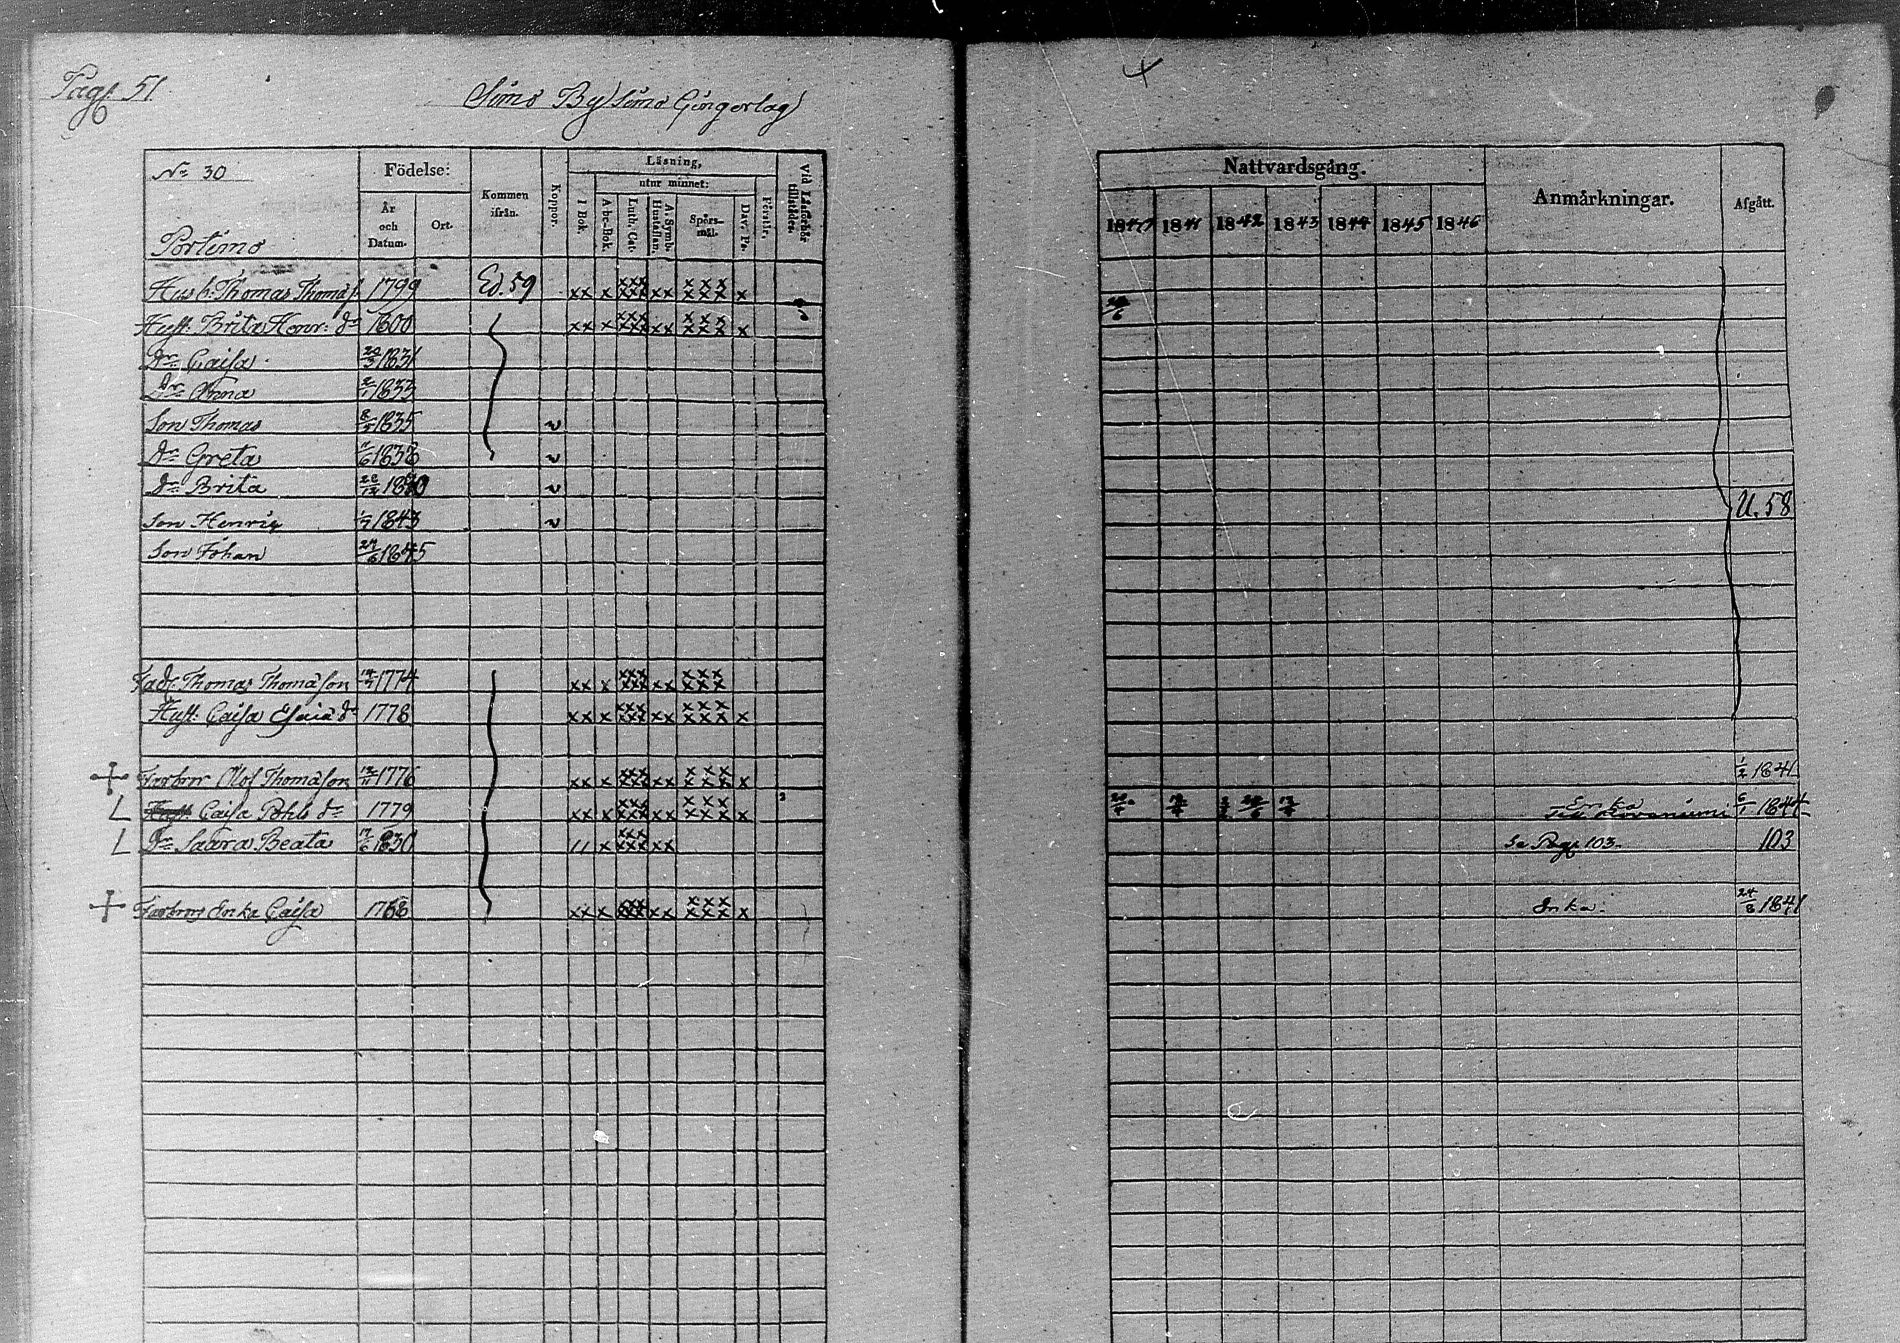 Pag. 51
Simo By Simo Gingerlag
No 30
Portimo
Födelse:
År och Datum.
Ort.
Kommen ifrån.
Koppor.
Läsning,
utur minnet:
I Bok.
Abc-Bok.
Luth. Cat.
Hustaflan.
A. Symb.
Spörsmål.
Dav. Ps.
Förstår,
Vid Läseförhör tillstädes.
Husb. Thomas Thomass 1799 Ed. 59 xx x xxx xxx xx xxx xxx x
Hust. Brita Henr. dr 1800 xx x xxx xxx xx xxx xxx x
Dr Caisa 20/3 1831
Dr Anna 1833
Son Thomas 8/5 1835 v
Dr Greta 11/6 1838 v
Dr Brita 28/12 1840 v
Son Henric 1/7 1843 v
Son Johan 24/6 1845
Fadr Thomas Thomasson 1774 xx x xxx xxx xx xxx xxx
Hust. Caisa Esaia dr 1778 xx x xxx xxx xx xxx xxx x
Farbror Olof Thomasson 1776 xx x xxx xxx xx xxx xxx x
Caisa Pohls dr 1779 xx x xxx xxx xx xxx xxx x
Dr Saara Beata 17/6 1830 11 x xxx xxx xx
Erika Caisa 1768 xx x xxx xx xxx xxx x
Nattvardsgång.
1841 1842 1843 1844 1845 1846
Anmärkningar.
Afgått.
U. 58
1/2 1841
Enka
till Rovaniemi 6/1 1844
Se Pag. 103. 103
Enka. 24/8 1841